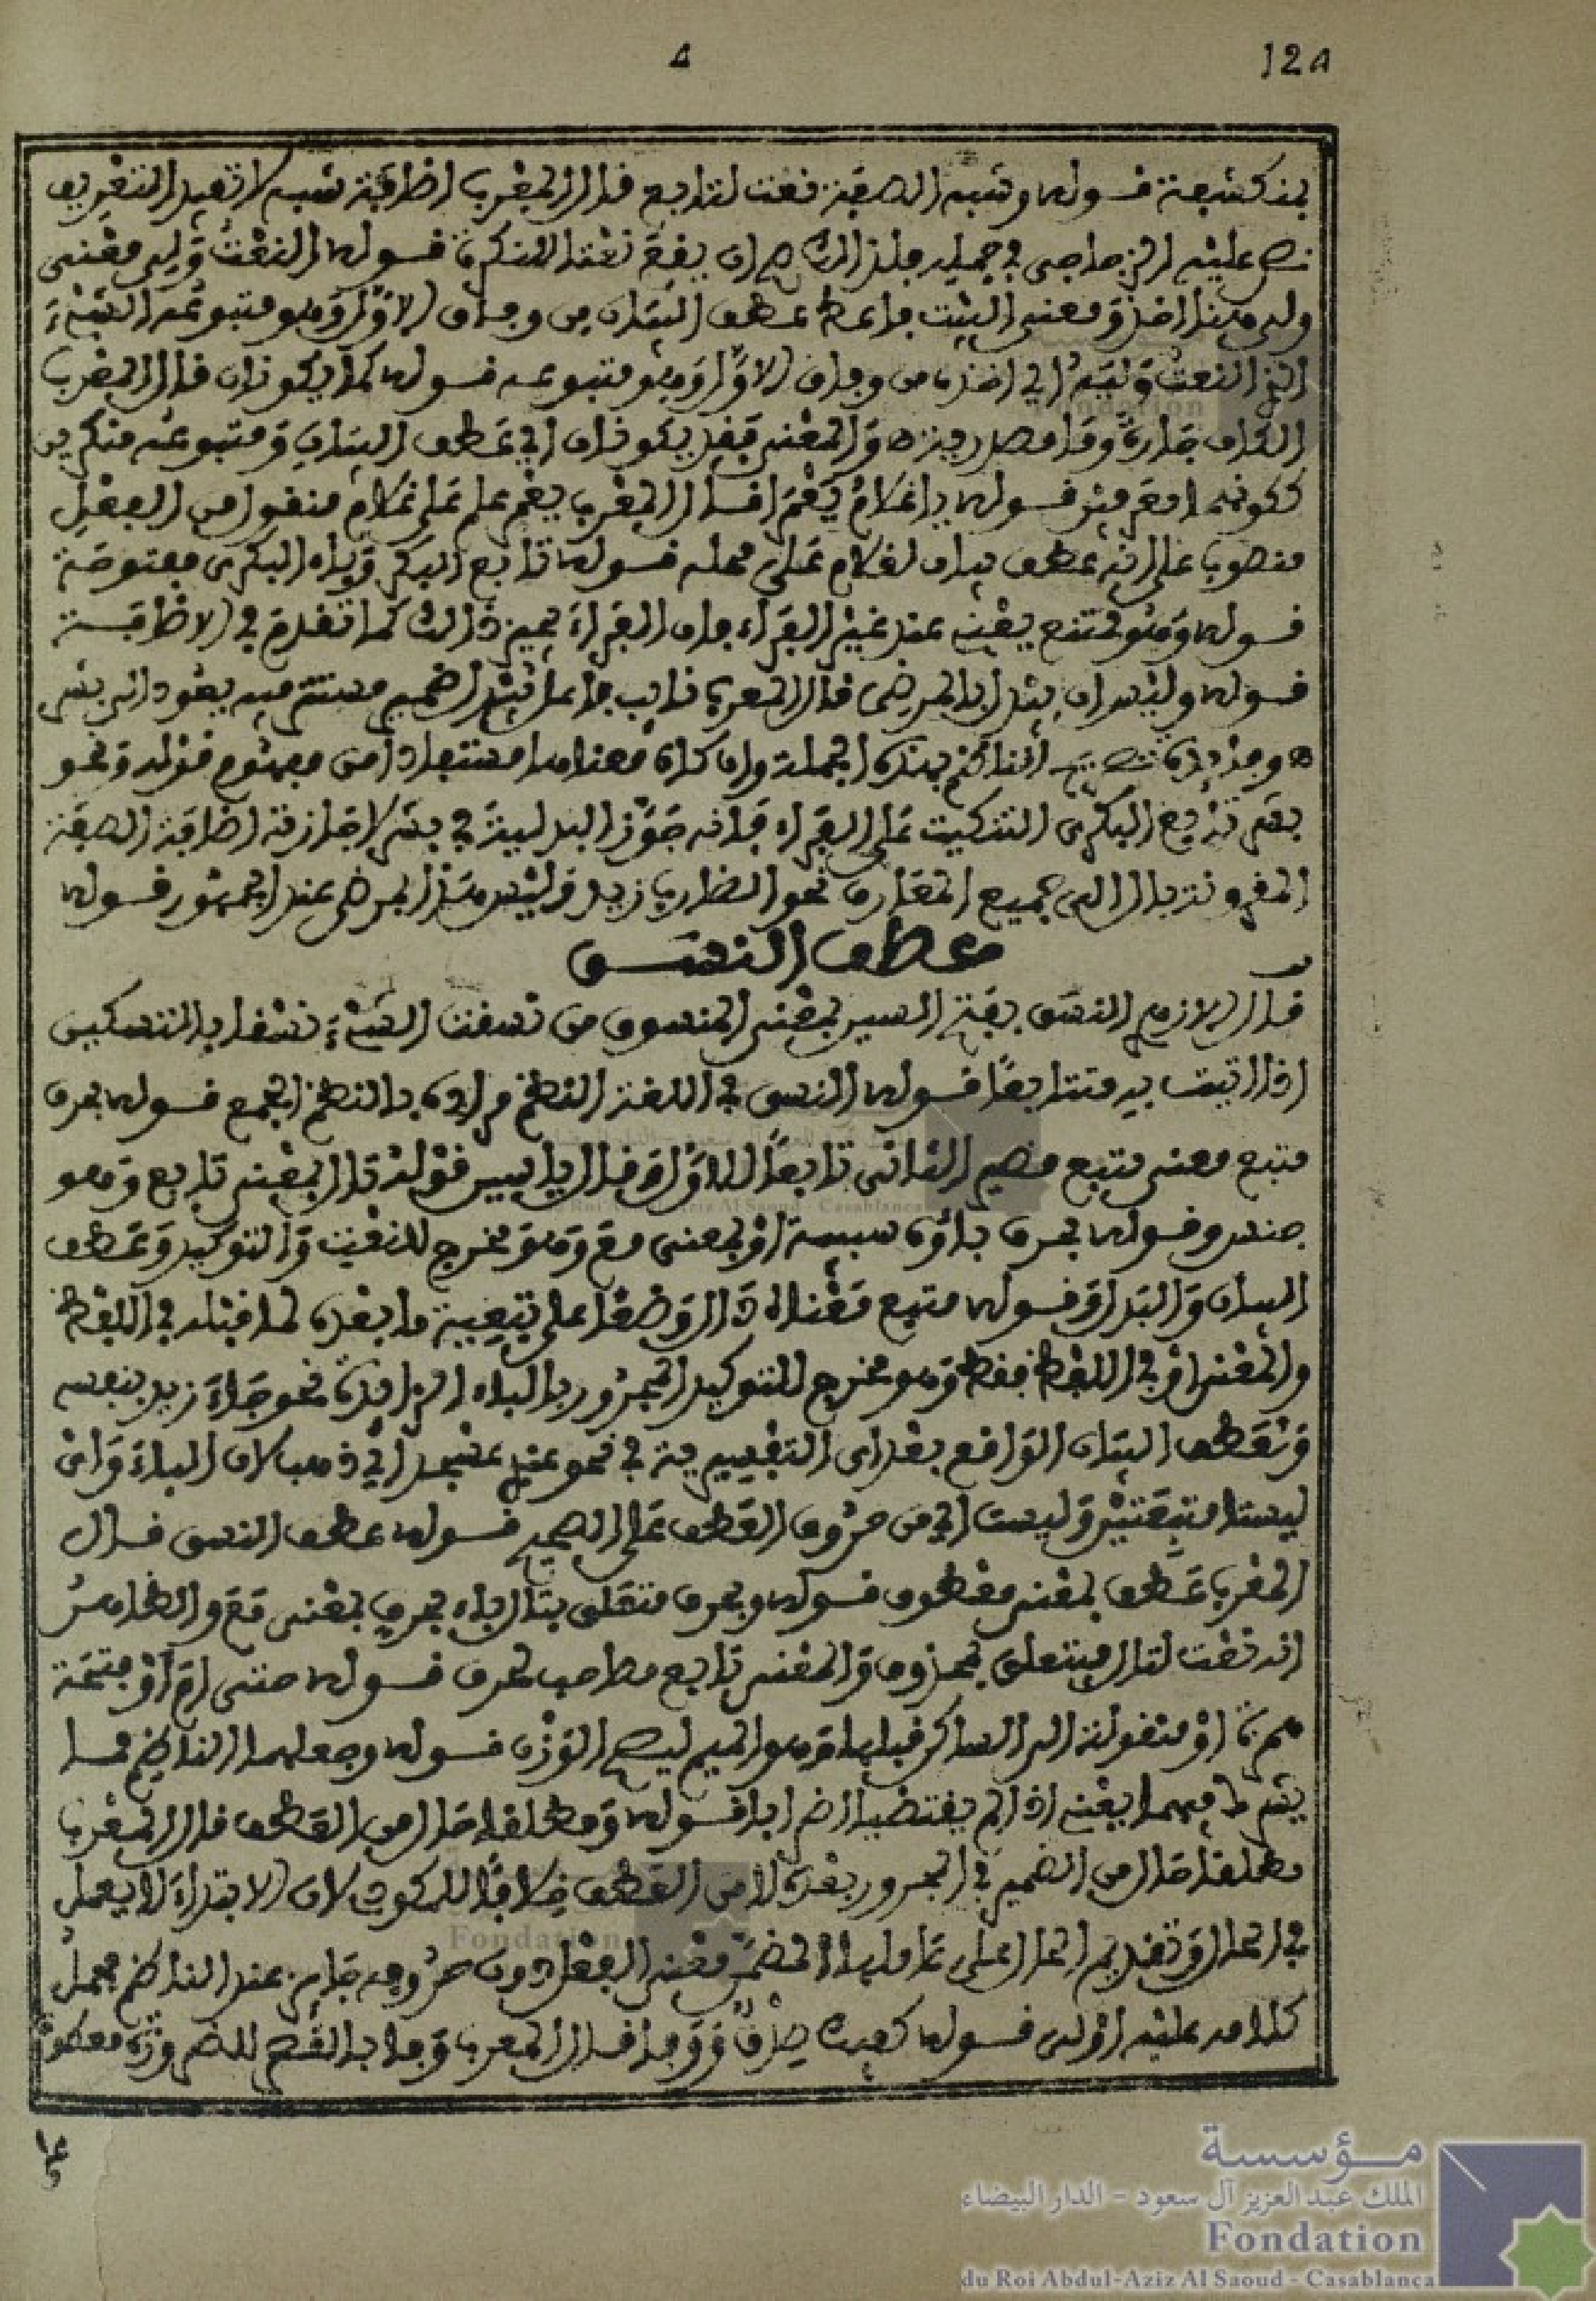 124
بمنكشفة قوله وشبه الصفة نعت لتابع قال المعرب إضافة شبه لا تفيد التعريف
نص عليه الزجاجي في جمله فلذلك صح أن يقع نعتا للنكرة قوله النعت ولي معنى
ولي هنا اخذ ومعنى البيت فاعط عطف البيان من وفاق الاول وهو متبوعه الشيء
الذي النعت وليه أي اخذه من وفاق الاول وهو متبوعه قوله كما يكونان قال المعرب
الكاف جارة وما مصدرية والمعنى فقد يكونان أي عطف البيان ومتبوعه منكرين
ككونهما معرفين قوله يا غلام يعمرا قال المعرب يعمر علم على غلام منقول من الفعل
منصوبا على انه عطف بيان لغلام على محله قوله تابع البكري وياء البكري مفتوحة
قوله وهو ممتنع يعني عند غير الفراء فإن الفراء يجيز ذلك كما تقدم في الاضافة
قوله وليس ان يبدل بالمرضي قال المعرب نائب فاعل يبدل ضمير مستتر فيه يعود الى بشر
وفائدة تصريح الناظم بهذه الجملة وان كان معناها مستفادا من مفهوم قوله ونحو
بشر تابع البكري التنكيت على الفراء فانه جوز البدلية في بشر لاجازته اضافة الصفة
المقرونة بال الى جميع المعارف نحو الضارب زيد وليس هذا المرضي عند الجمهور قوله
عطف النسق
قال الازهري النسق بفتح السين بمعنى المنسوق من نسقت الشيء نسقا بالتسكين
اذا اتيت به متتابعا قوله النسق في اللغة النظم مراده بالنظم الجمع قوله بحرف
متبع معنى متبع مصير الثاني تابعا للاول وقال يابيس قوله تال بمعنى تابع وهو
جنس وقوله بحرف باؤه سببية او بمعنى مع وهو مخرج للنعت والتوكيد وعطف
البيان والبدل وقوله متبع معناه دال وضعا على تبعية ما بعده لما قبله في اللفظ
والمعنى او في اللفظ فقط وهو مخرج للتوكيد المجرور بالباء الزائدة نحو جاء زيد بنفسه
وعطف البيان الواقع بعد اي التفسيرية في نحو عندي عسجد أي ذهب لان الباء واي
ليستا متبعتين وليست أي من حروف العطف على الصحيح قوله عطف النسق قال
المعرب عطف بمعنى معطوف قوله وبحرف متعلق بتال باء بحرف بمعنى مع والظاهر
انه نعت لتال فيتعلق بمحذوف والمعنى تابع مصاحب لحرف قوله حتى ام او بفتحة
همزة او منقولة الى الساكن قبلها وهو الميم ليصح الوزن قوله وجعلهما الناظم مما
يشرط فيهما يعني اذا لم يقتضيا اضرابا قوله ومطلقا حال من العطف قال المعرب
مطلقا حال من الضمير في المجرور بعده لا من العطف خلافا للمكودي لان الابتداء لا يعمل
في الحال وتقديم الحال على عاملها المضمن معنى الفعل دون حروفه جائز عند الناظم فحمل
كلامه عليه اولى قوله كفيك صدق ووفا قال المعرب وفا بالقصر للضرورة معطوف
مؤسسة
الملك عبد العزيز آل سعود - الدار البيضاء
Fondation
du Roi Abdul-Aziz Al Saoud - Casablanca